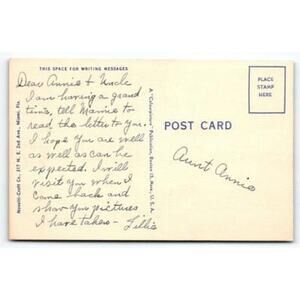 THIS SPACE FOR WRITING MESSAGES
Dear Annie & Uncle
I am having a grand
time, tell Mamie to
read the letter to you.
I hope you are well
as well as can be
expected. I will
visit you when I
come back and
show you pictures
I have taken - Lillie
Novelti-Craft Co., 317 N. E. 2nd Ave., Miami, Fla.
A "Colourpicture" Publication, Boston 15, Mass., U.S.A.
POST CARD
PLACE
STAMP
HERE
Aunt Annie